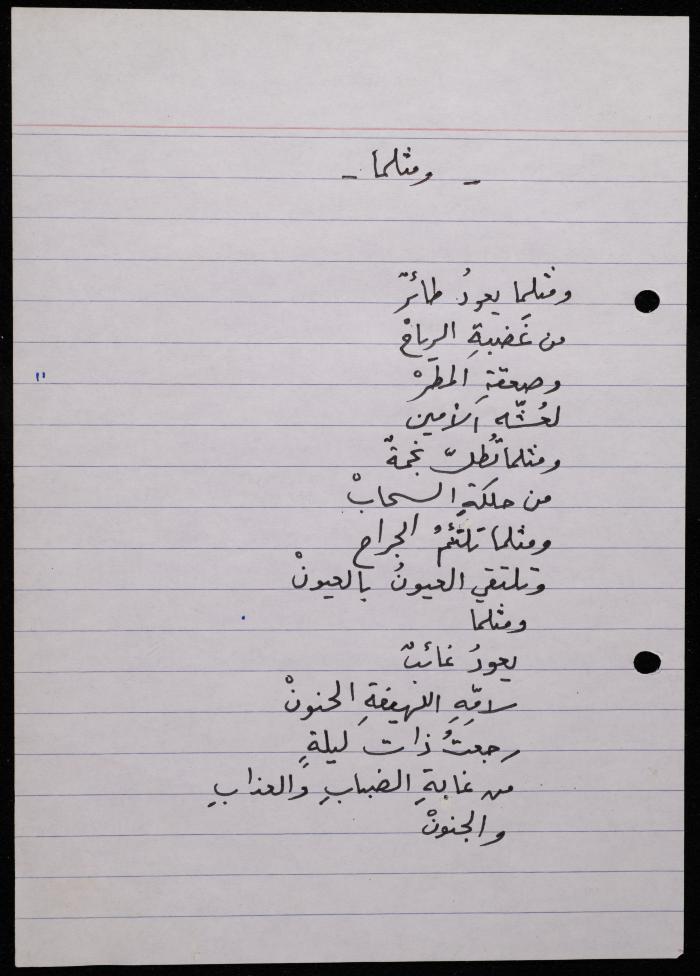 - ومثلما -
ومثلما يعودُ طائرٌ
من غَضبةِ الرياحْ
وصعقةِ المطرْ
لعُشّه الأمين
ومثلما تُطلّ نجمةٌ
من حلكةِ السحابْ
ومثلما تلتئمُ الجراح
وتلتقي العيونُ بالعيونْ
ومثلما
يعودُ غائبٌ
لامّهِ اللهيفةِ الحنونْ
رجعتُ ذات ليلةٍ
من غابةِ الضبابِ والعذابِ
والجنونْ